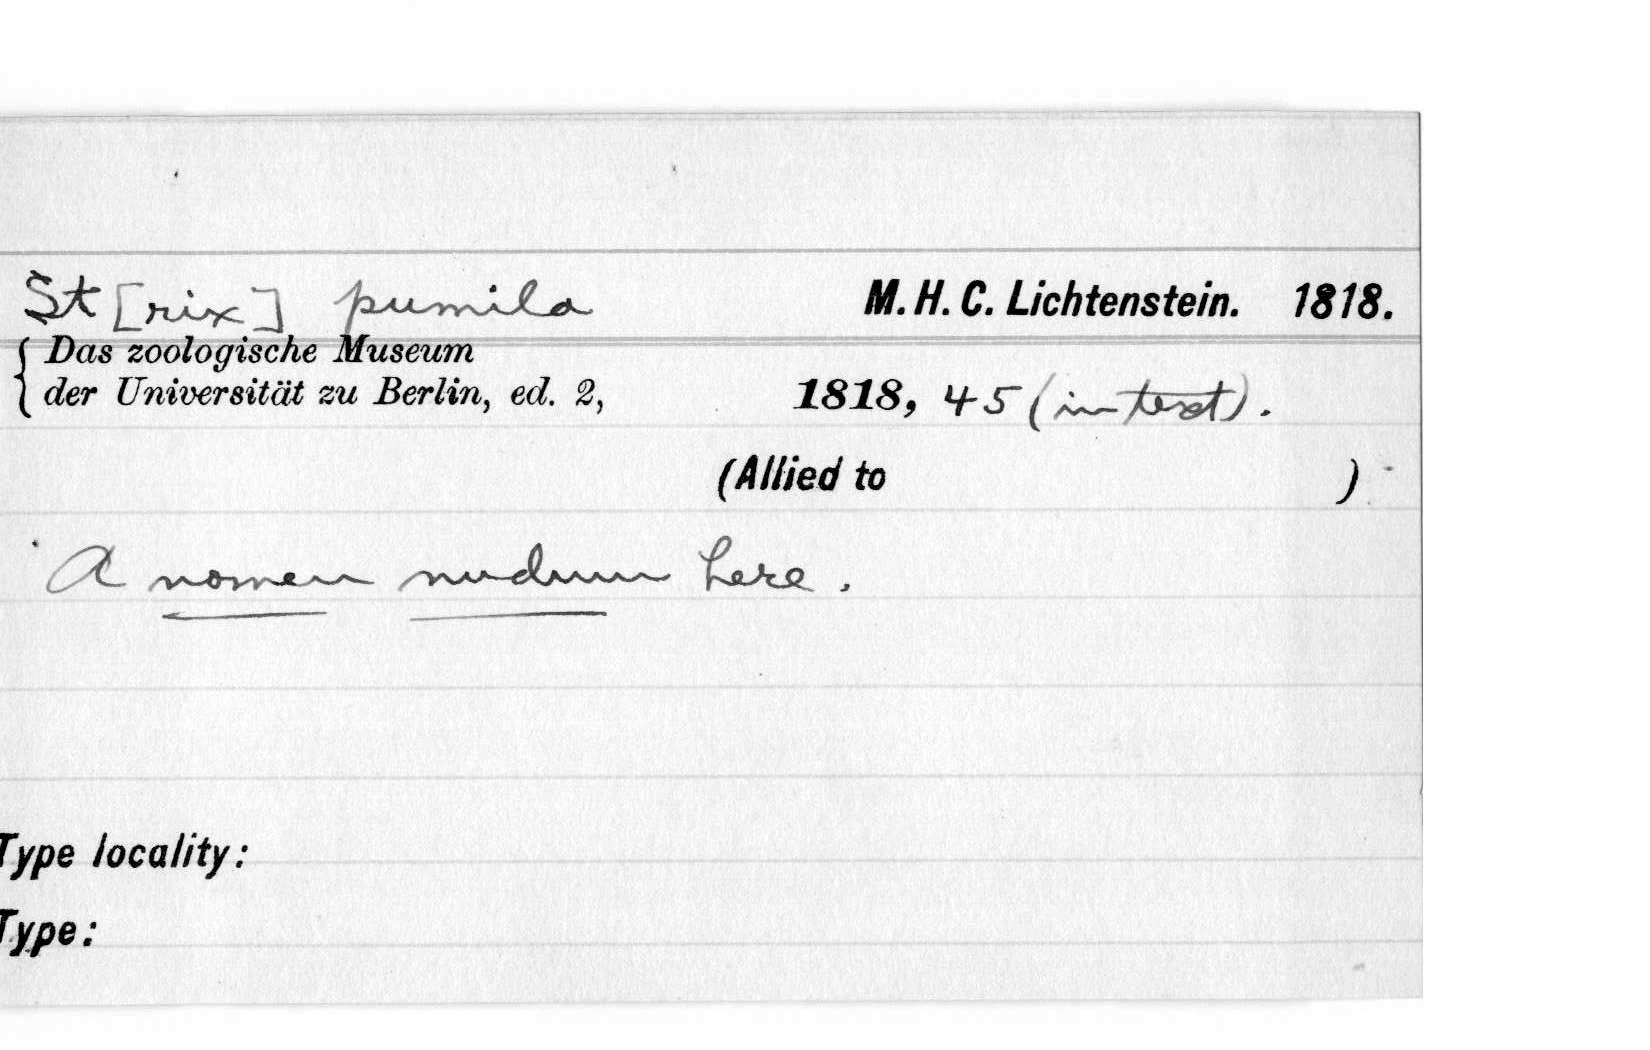 St[rix] pumila M. H. C. Lichtenstein. 1818.
{ Das zoologische Museum
der Universität zu Berlin, ed. 2, 1818, 45 (in text).
(Allied to )
A nomen nudum here.
Type locality:
Type: